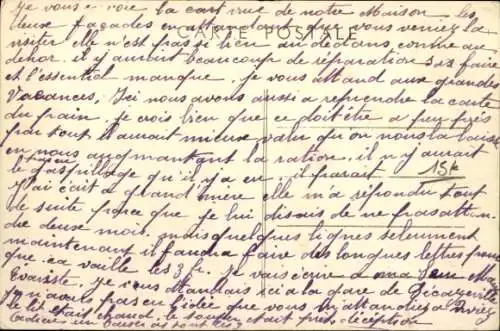 Je vous envoie la carte vue de notre Maison. les
deux façades en attendant que vous veniez la
CARTE POSTALE
visiter elle n'est pas si bien au dedans, comme au
dehor. il y aurait beaucoup de réparation a faire
et l'essential manque. je vous attand aux grandes
Vacances, Ici nous avons aussi a reprendre la carte
du pain. je crois bien que ce doit être a peu près
par tout il aurait mieux valu qu'on nous la laisse
en nous augmantant la ration. il n'y aurait
le gaspillage qu'il y a eu. il parait
15k
J'ai écrit a grand'mère elle m'a répondu tout
de suite parce que je lui disais de ne pas attan
dre deux mois. mais quelques lignes selement
maintenant il faudra faire des longues lettres pour
que ça vaille les 3 fr. Je vais écrire a ma
Evariste. Je vous attandais ici a la gare de Decazeville
je n'avais pas eu l'idée que vous m'attandiez a Viviez
le lit était chaud. le souper était prêt. déception